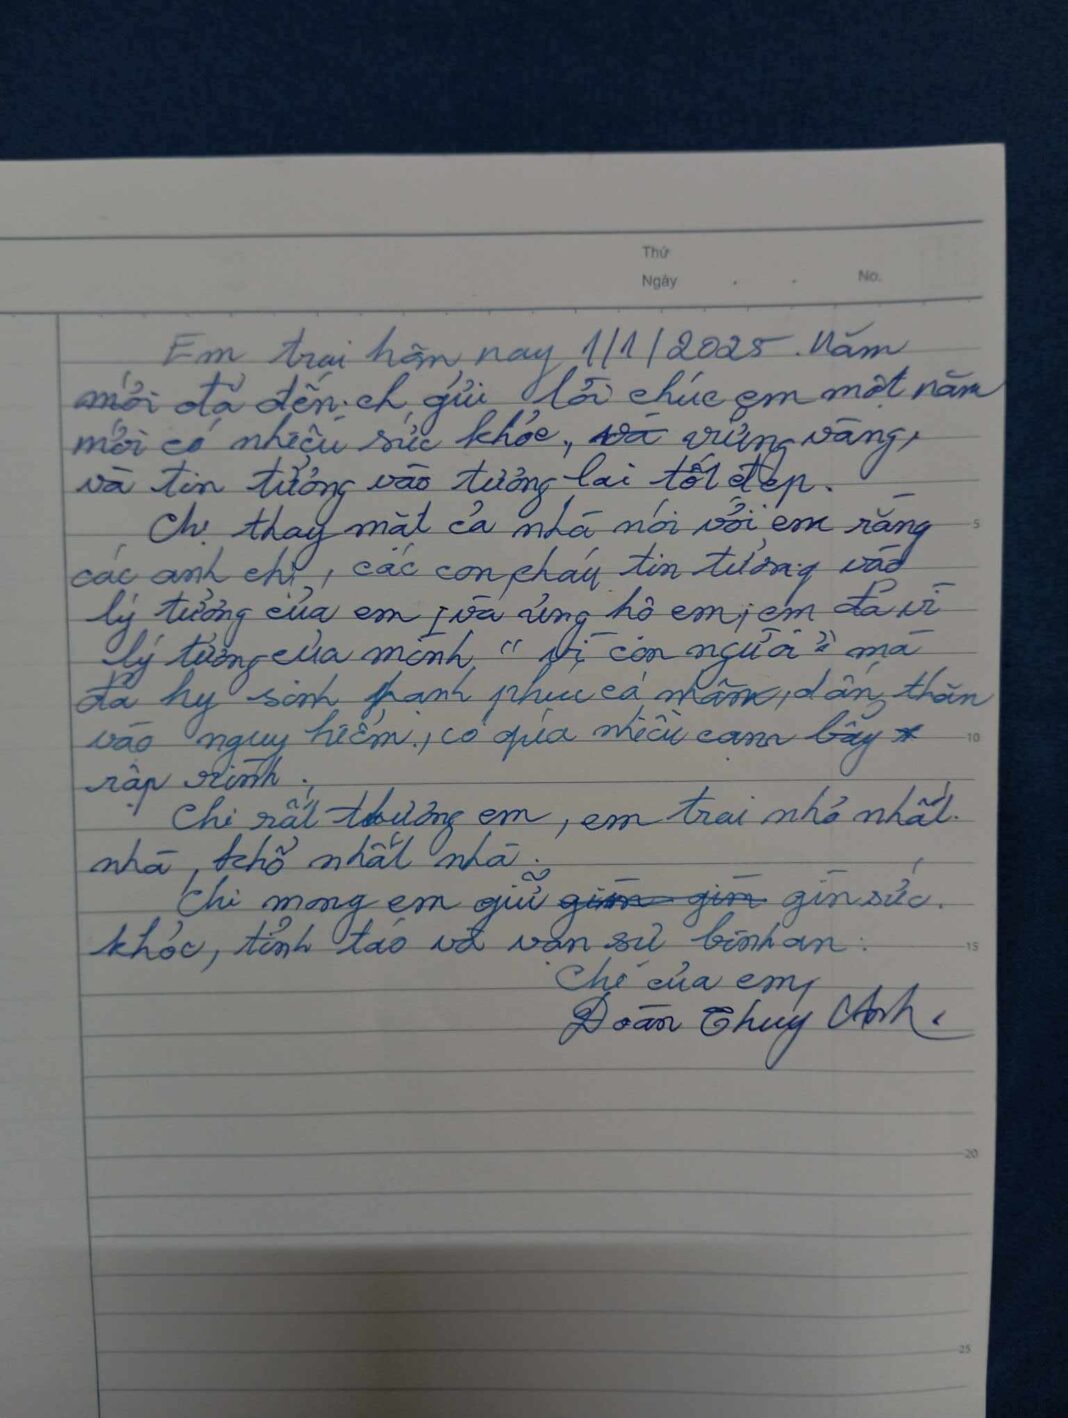 Thứ
Ngày . . No.
Em trai hôm nay 1/1/2025. Năm
mới đã đến. ch gửi lời chúc em một năm
mới có nhiều sức khỏe, và vững vàng,
và tin tưởng vào tương lai tốt đẹp.
Chị thay mặt cả nhà nói với em rằng
5
các anh chị, các con cháu tin tưởng vào
lý tưởng của em, và ủng hộ em, em đã vì
lý tưởng của mình "vì con người" mà
đã hy sinh hạnh phúc cá nhân, dấn thân
vào nguy hiểm, có quá nhiều cạm bẫy
10
rập rình.
Chị rất thương em, em trai nhỏ nhất
nhà, khổ nhất nhà.
Chị mong em giữ gìn gìn gìn sức
khỏe, tỉnh táo và vạn sự bình an.
15
Chị của em,
Đoàn Thuy Anh.
20
25